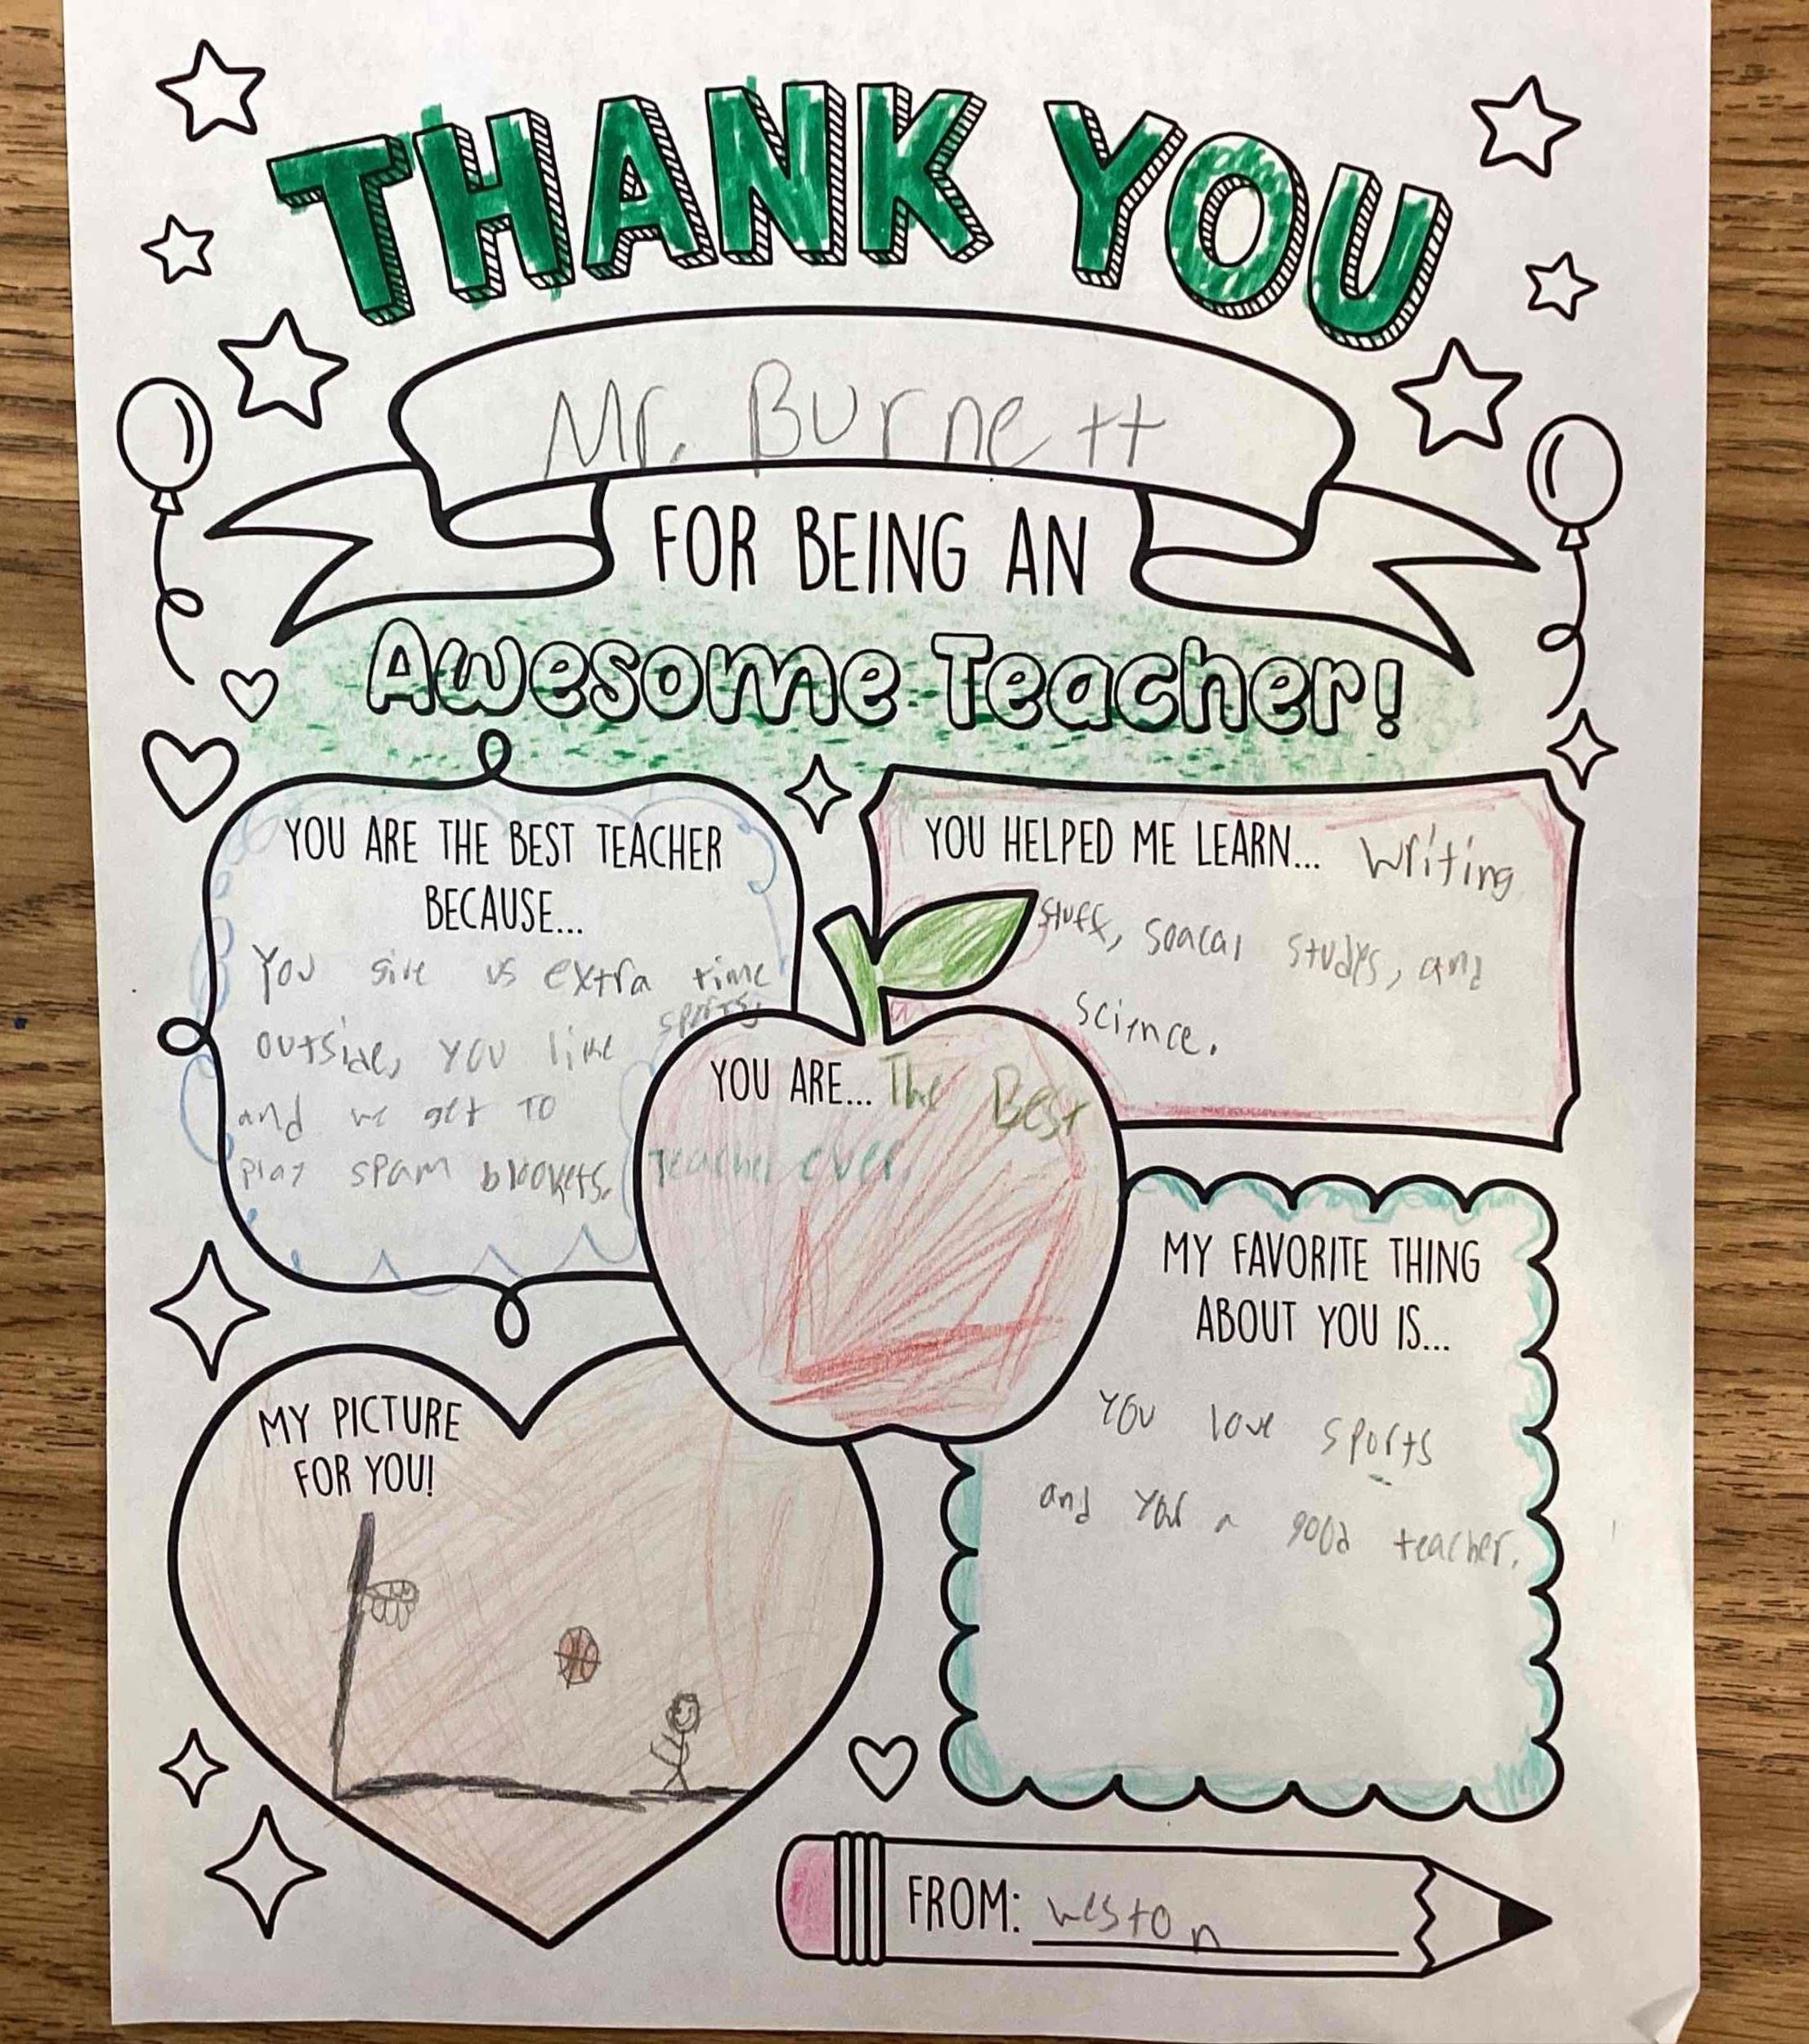 THANK YOU
Mr. Burnett
FOR BEING AN
Awesome Teacher!
YOU ARE THE BEST TEACHER
BECAUSE...
You give us extra time
outside, you like sports
and we get to
play spam blookets.
YOU HELPED ME LEARN... Writing
stuff, soacal studys, and
science.
YOU ARE... The Best
teacher ever.
MY FAVORITE THING
ABOUT YOU IS...
You love sports
and your a good teacher.
MY PICTURE
FOR YOU!
FROM: weston